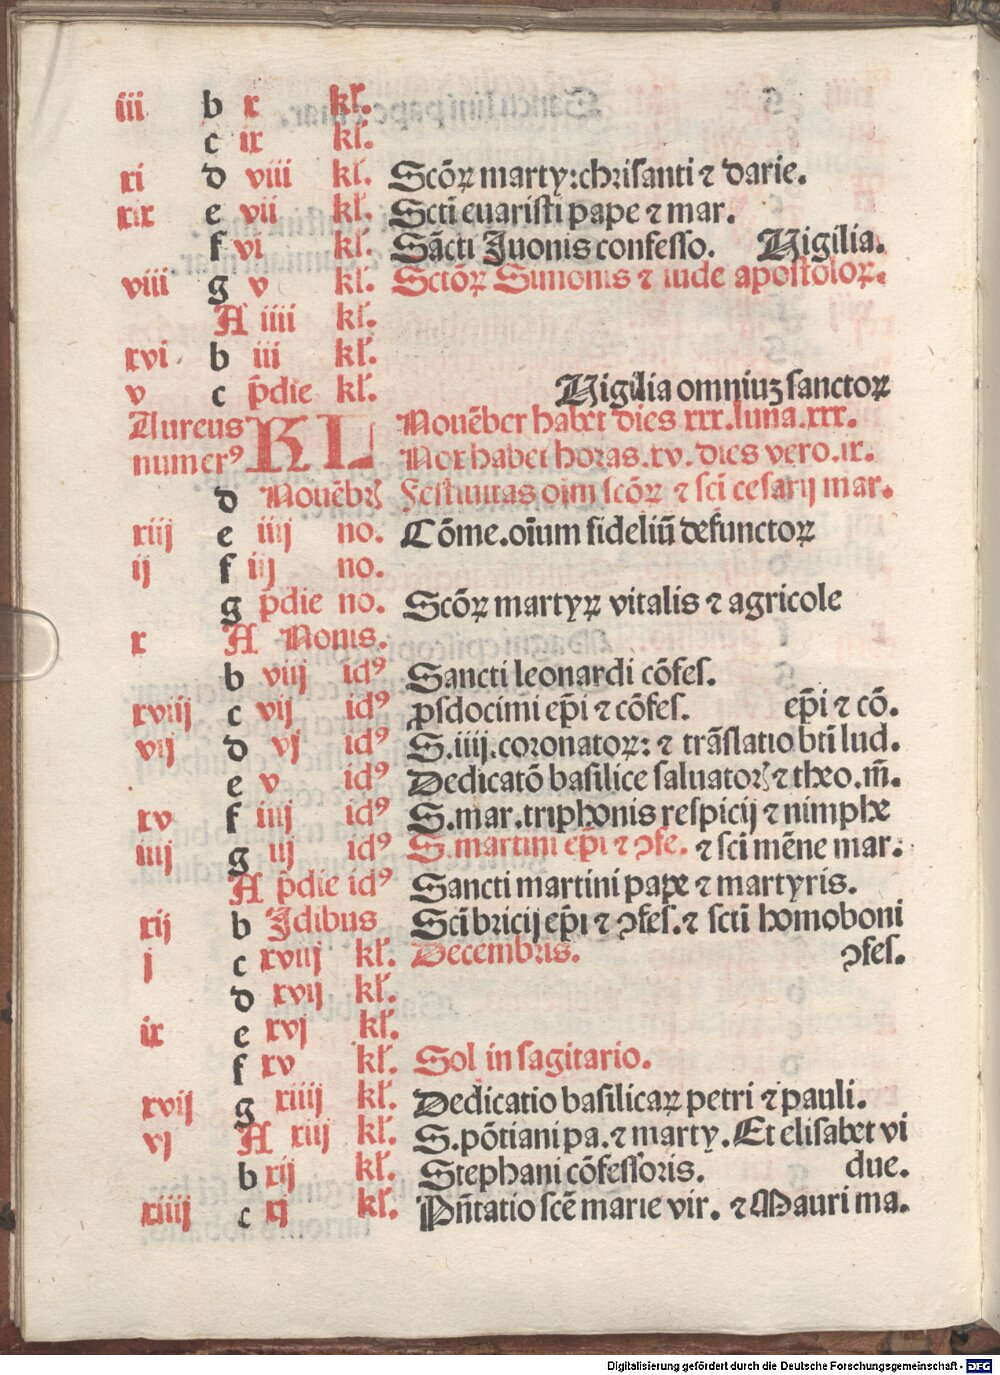 iii b x kl̄.
c ix kl̄.
xi d viii kl̄. Scōꝝ marty: chrisanti ⁊ darie.
xix e vii kl̄. Sctī euaristi pape ⁊ mar.
f vi kl̄. Sācti Iuonis confesso. Vigilia.
viii g v kl̄. Sctōꝝ Simonis ⁊ iude apostoloꝝ.
A iiii kl̄.
xvi b iii kl̄.
v c p̄die kl̄. Vigilia omniuʒ sanctoꝝ
Aureus KL Nouēber habet dies xxx. luna. xxx.
numerꝰ Nox habet horas. xv. dies vero. ix.
d Nouēbꝝ Festiuitas oīm scōꝝ ⁊ scī cesarij mar.
xiij e iiij no. Cōme. oīum fideliū defunctoꝝ
ij f iij no.
g p̄die no. Scōꝝ martyꝝ vitalis ⁊ agricole
x A Nonis.
b viij idꝰ Sancti leonardi cōfes.
xviij c vij idꝰ ꝓsdocimi ep̄i ⁊ cōfes. ep̄i ⁊ cō.
vij d vj idꝰ S. iiij. coronatoꝝ: ⁊ trāslatio btī lud.
e v idꝰ Dedicatō basilice saluatoꝝ ⁊ theo. m̄.
xv f iiij idꝰ S. mar. triphonis respicij ⁊ nimphe
iiij g iij idꝰ S. martini ep̄i ⁊ ꝯfe. ⁊ scī mēne mar.
A p̄die idꝰ Sancti martini pape ⁊ martyris.
xij b Idibus Scī bricij ep̄i ⁊ ꝯfes. ⁊ sctī homoboni
j c xviij kl̄. Decembris. ꝯfes.
d xvij kl̄.
ix e xvj kl̄.
f xv kl̄. Sol in sagitario.
xvij g xiiij kl̄. Dedicatio basilicaꝝ petri ⁊ pauli.
vj A xiij kl̄. S. pōtiani pa. ⁊ marty. Et elisabet vi
b xij kl̄. Stephani cōfessoris. due.
xiiij c xj kl̄. Pn̄tatio scē marie vir. ⁊ Mauri ma.
Digitalisierung gefördert durch die Deutsche Forschungsgemeinschaft - DFG